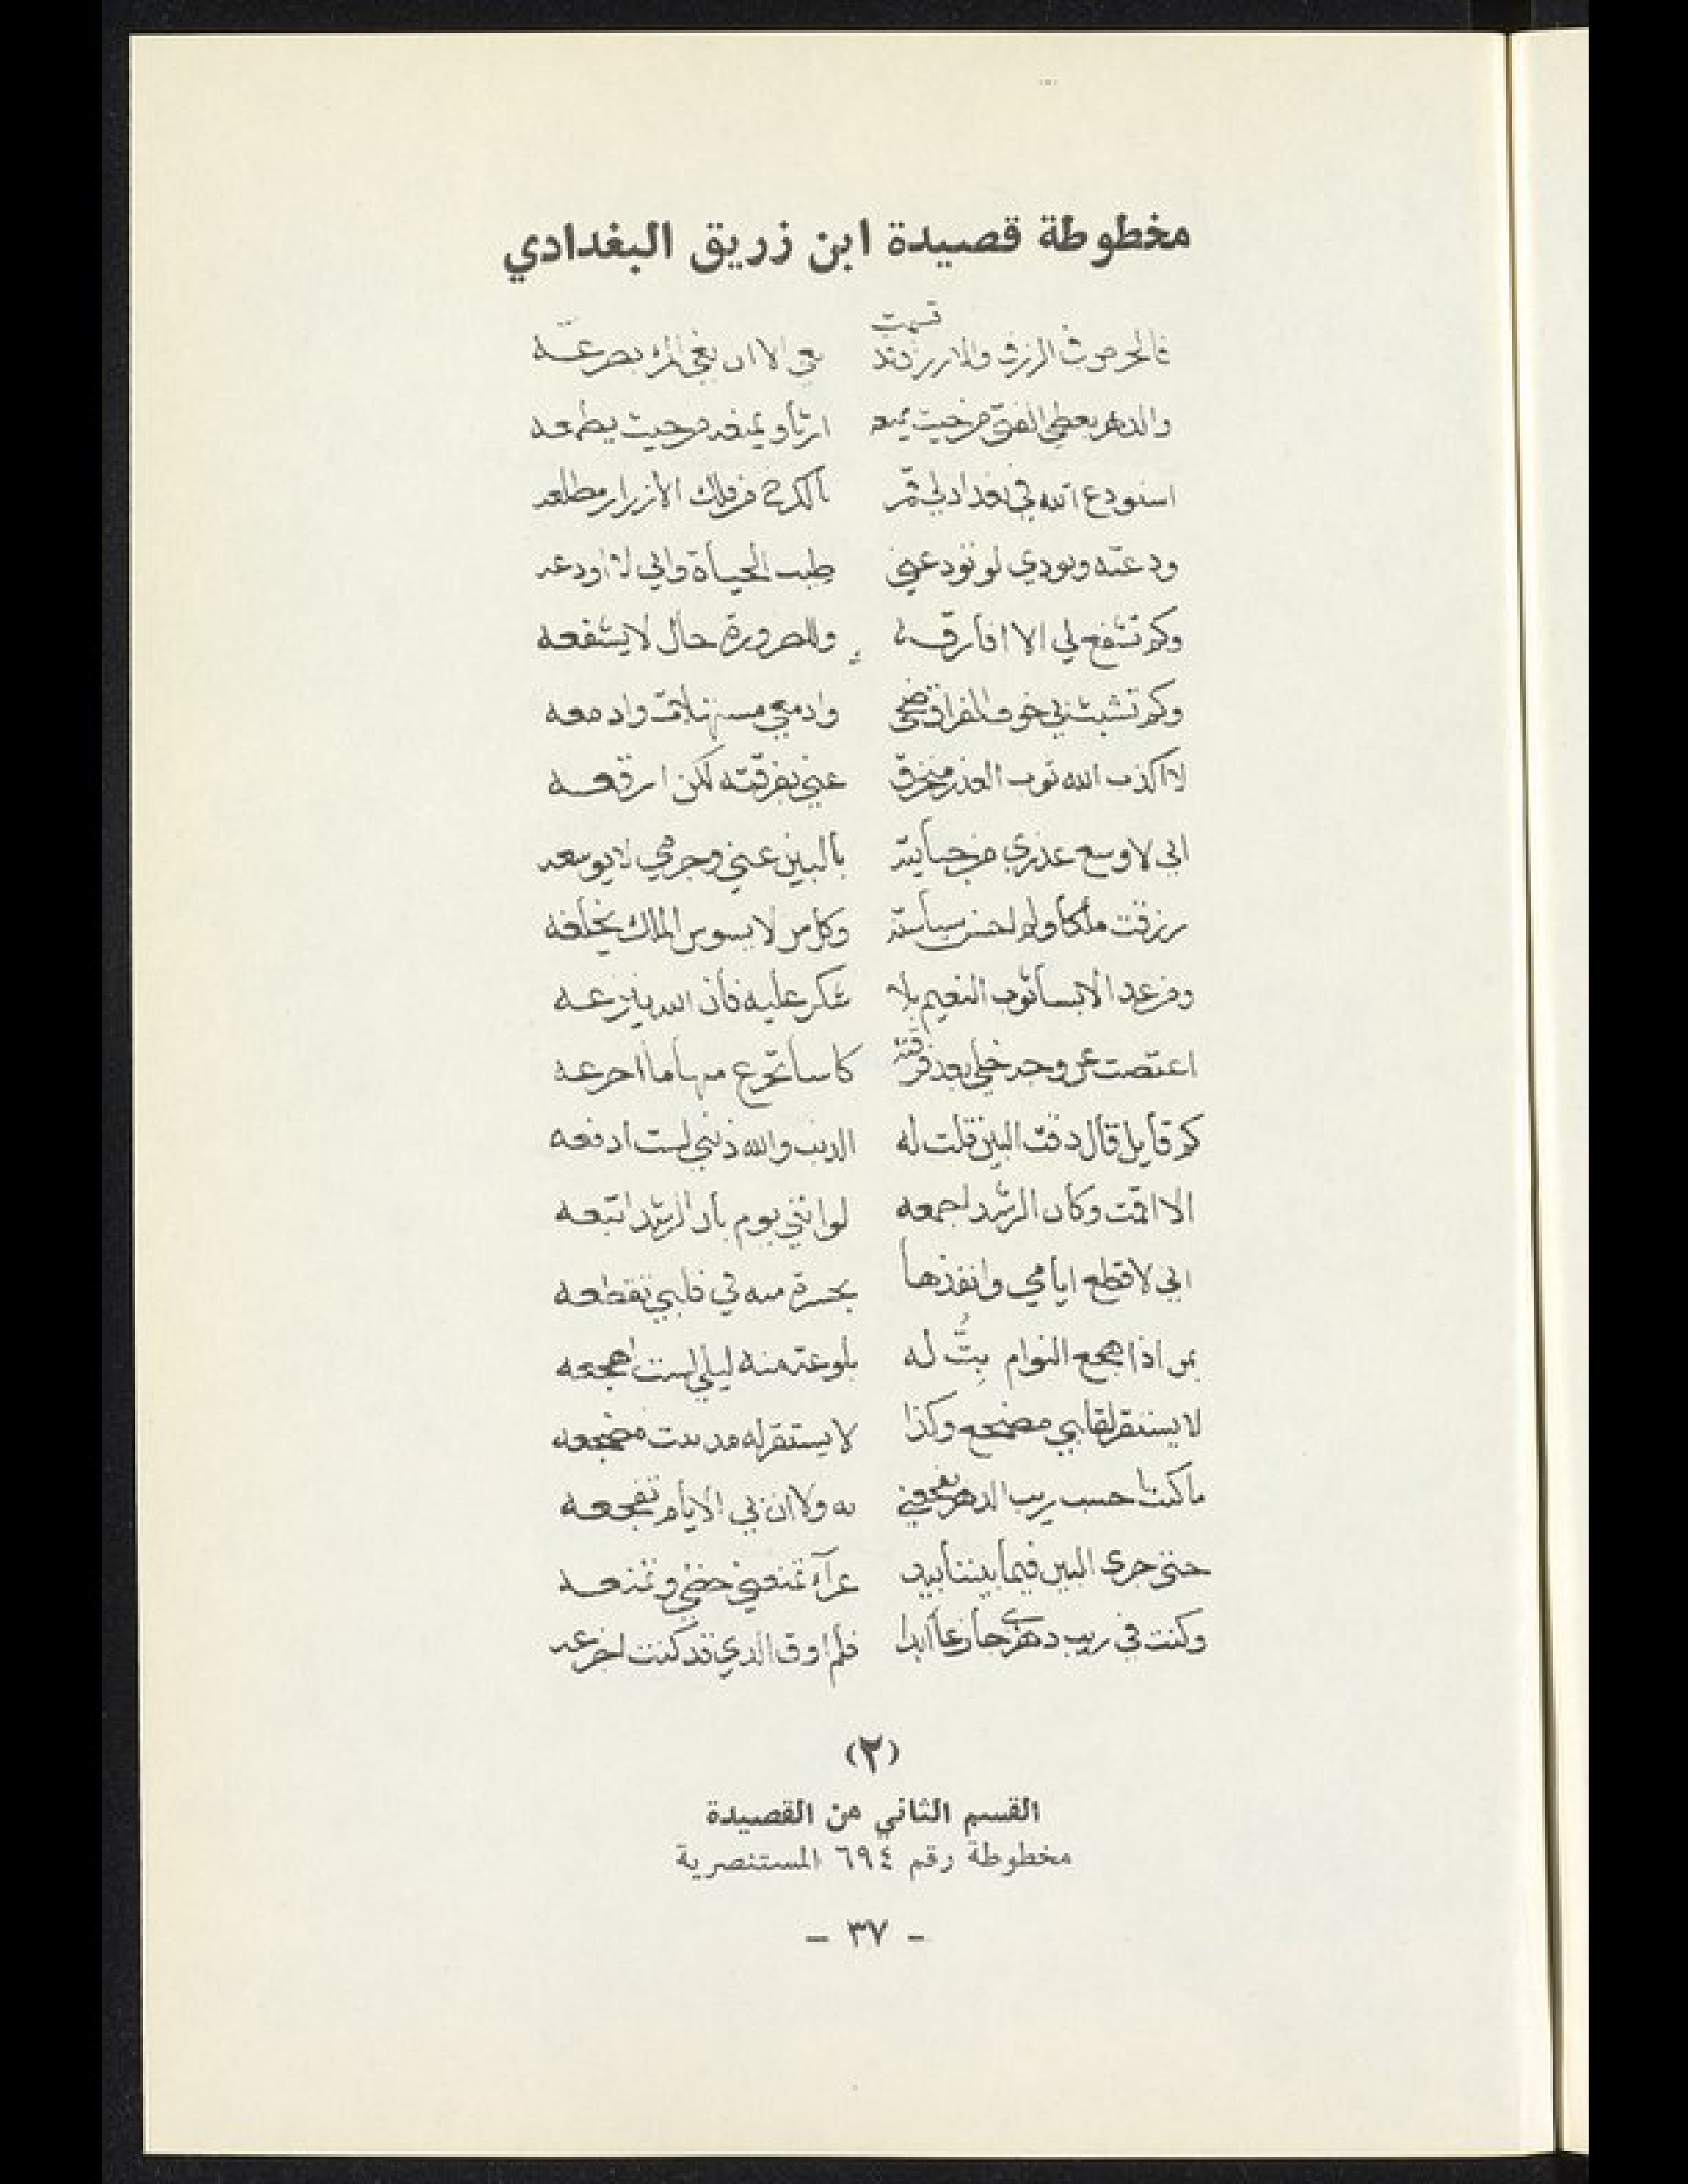 مخطوطة قصيدة ابن زريق البغدادي
قسمت
فالحرص في الرزق والارزاق قد بغي الا ان بغي المرء يصرعه
والدهر يعطي الفتى من حيث يمنعه ارثا ويمنعه من حيث يطمعه
استودع الله في بغداد لي قمر بالكرخ من فلك الأزرار مطلعه
ودعته وبودي لو تودعني طيب الحياة واني لا اودعه
وكم تشفع لي الا افارقه وللضرورة حال لا يشفعه
وكم تشبث بي خوف الفراق ضحى وادمعي مستهلات وادمعه
لا اكذب الله ثوب العذر منخرق عني بفرقته لكن ارقعه
اني لاوسع عذري من جنايته بالبين عني وجرمي لا يوسعه
رزقت ملكا ولم احسن سياسته وكل من لا يسوس الملك يخلعه
ومن غدا لابسا ثوب النعيم بلا شكر عليه فأن الله ينزعه
اعتضت عن وجه خلي بعد فرقته كاسا تجرع منها ما اجرعه
كم قايل قال ذقت البين قلت له الذنب والله ذنبي لست ادفعه
الا اقمت وكان الرشد اجمعه لو انني يوم بان الرشد اتبعه
اني لا قطع ايامي وانفذها بحسرة منه في قلبي تقطعه
بمن اذا هجع النوام بتُّ له بلوعة منه ليلي لست اهجعه
لا يستقر لقلبي مضجع وكذا لا يستقر له مذ بنت مضجعه
ما كنت احسب ريب الدهر يفجعني به ولا ان بي الايام تفجعه
حتى جرى البين فيما بيننا بيد عرآء تمنعني حظي وتمنعه
وكنت في ريب دهري جازعا ابدا فلم اوق الذي قد كنت اجزعه
(٢)
القسم الثاني من القصيدة
مخطوطة رقم ٦٩٤ المستنصرية
– ٣٧ –